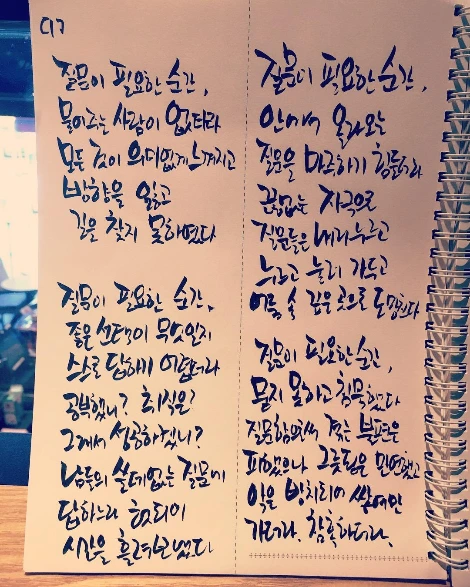 질문이 필요한 순간,
물어주는 사람이 없더라
모든 것이 의미없게 느껴지고
방향을 잃고
길을 찾지 못하였다
질문이 필요한 순간,
좋은 선택이 무엇인지
스스로 답하기 어렵더라
공부했니? 회식은?
그래서 성공하겠니?
남들의 쓸데없는 질문에
답하느라 헛되이
시간을 흘려보냈다
질문이 필요한 순간,
안에서 올라오는
질문을 마주하기 힘들더라
끊없는 자극으로
질문들은 내리누르고
누르고 눌러 가두고
어둠 속 깊은 곳으로 도망친다
질문이 필요한 순간,
묻지 못하고 침묵했다
질문함으로써 겪는 불편은
피했으나 그릇됨은 만연했고
악은 방치되어 쌓여만
가더라. 참혹하더라.